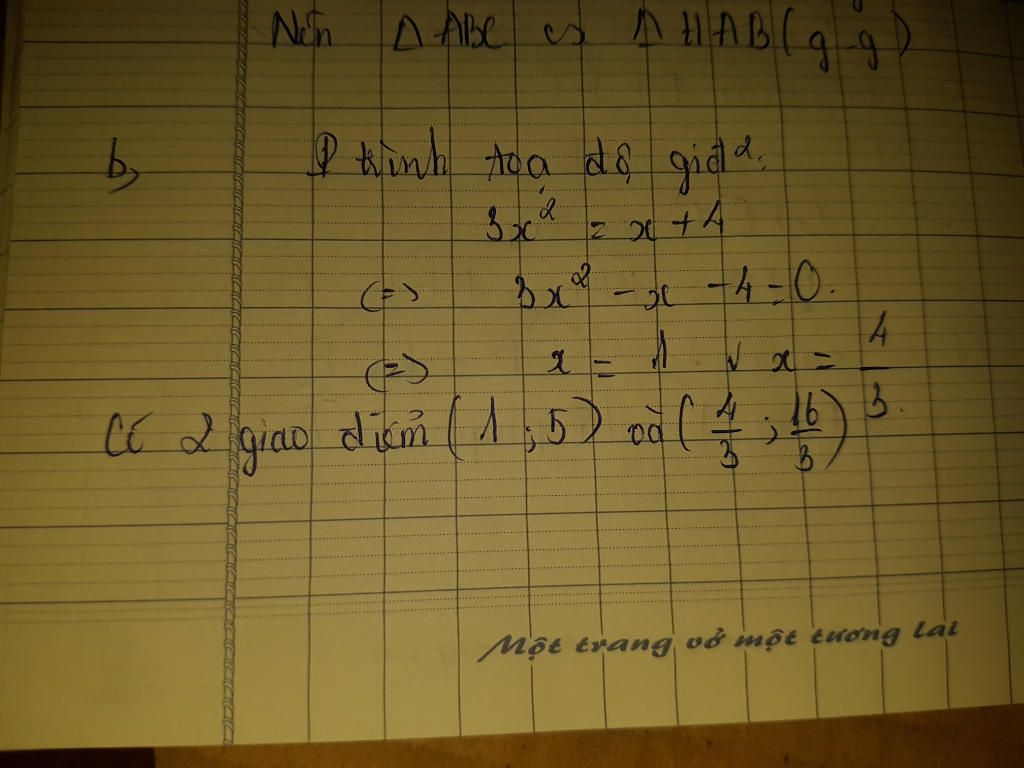 Nên Δ ABC ∽ Δ HAB (g-g)
b, P trình tọa độ giđ².
3x² = x + 4
(=) 3x² - x - 4 = 0.
(=) x = 1 v x = 4/3.
Có 2 giao điểm (1 ; 5) và (4/3 ; 16/3)
Một trang vở một tương lai